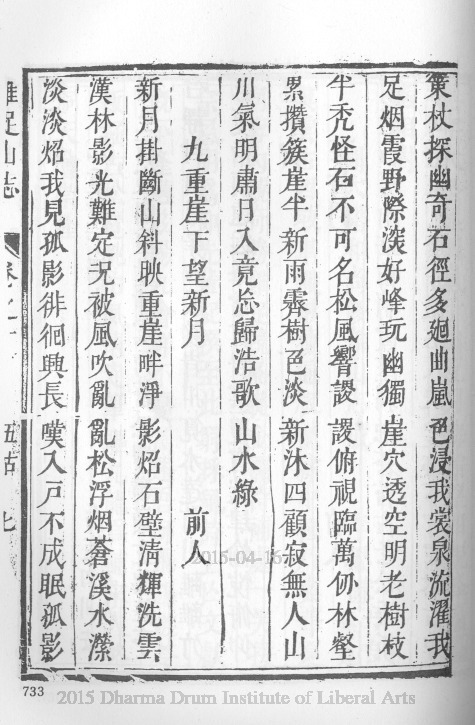 策杖探幽奇石徑多廻曲嵐色浸我裳泉流濯我
足烟霞野際深好峰玩幽獨崖穴透空明老樹枝
半禿怪石不可名松風響謖謖俯視臨萬仞林壑
累攢簇崖半新雨霽樹色淡新沐四顧寂無人山
川氣明肅日入竟忘歸浩歌山水綠
九重崖下望新月 前人
新月掛斷山斜映重崖畔淨影炤石壁清輝洗雲
漢林影光難定況被風吹亂亂松浮烟蒼溪水瀠
淡淡炤我見孤影徘徊興長嘆入戸不成眠孤影
雞足山志 卷之十 五古 七
733
2015-04-15
2015 Dharma Drum Institute of Liberal Arts